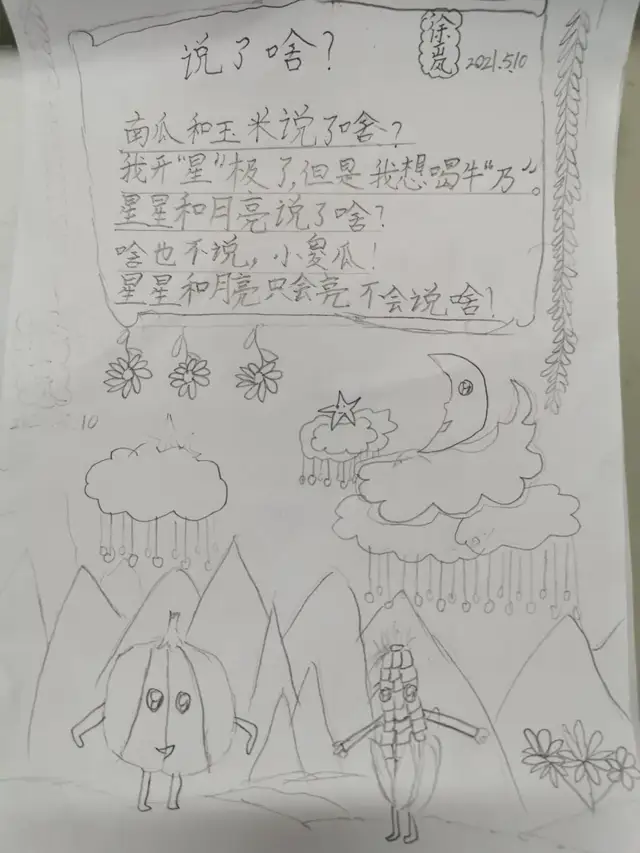 说了啥？
徐岚
2021.5.10
南瓜和玉米说了啥？
我开“星”极了,但是我想喝牛“乃”。
星星和月亮说了啥？
啥也不说，小傻瓜！
星星和月亮只会亮不会说啥！
10